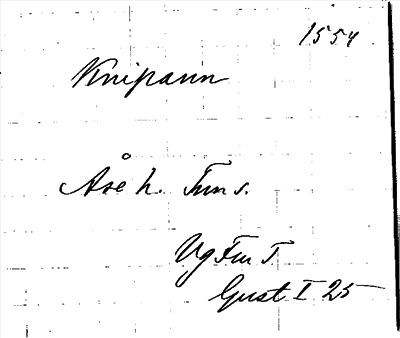 1554
Knipann
Åse h. Tun s.
Vg Fur T
Gust I 25